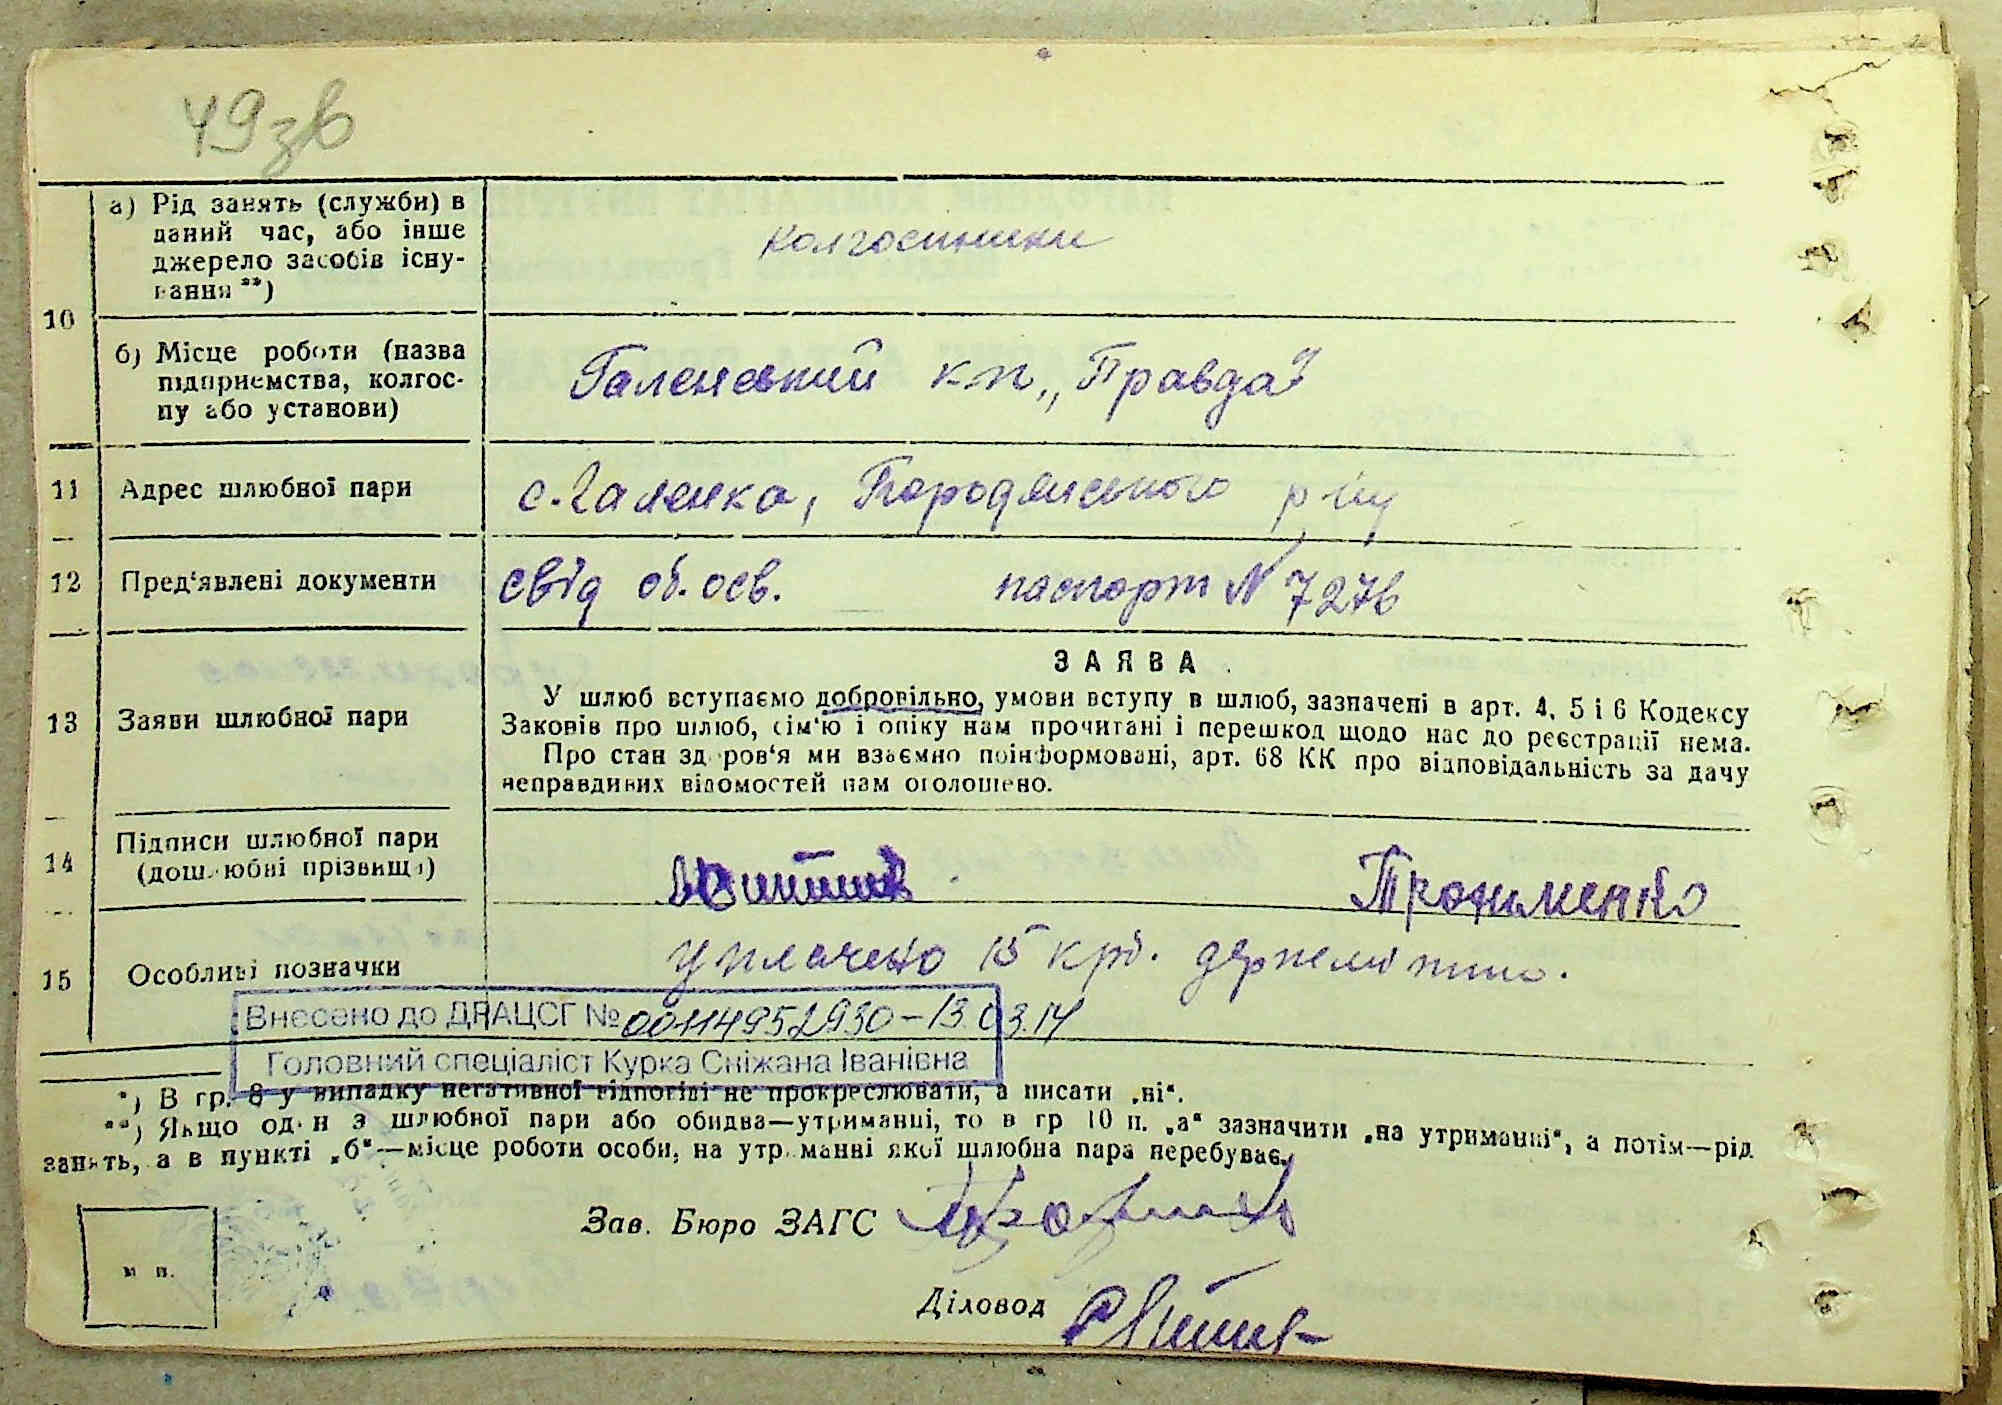 49зв
а) Рід занять (служби) в
даний час, або інше
джерело засобів існу-
вання **)
колгоспники
10
б) Місце роботи (назва
підприємства, колгос-
пу або установи)
Галенський кп „Правда"
11 Адрес шлюбної пари с. Галенка, Бородянського р-ну
12 Пред'явлені документи свід об. осв. паспорт № 7276
ЗАЯВА
13 Заяви шлюбної пари
У шлюб вступаємо добровільно, умови вступу в шлюб, зазначені в арт. 4, 5 і 6 Кодексу
Законів про шлюб, сім'ю і опіку нам прочитані і перешкод щодо нас до реєстрації нема.
Про стан здоров'я ми взаємно поінформовані, арт. 68 КК про відповідальність за дачу
неправдивих відомостей нам оголошено.
14 Підписи шлюбної пари
(дошлюбні прізвища)
Трофименко
15 Особливі позначки
уплачено 15 крб. держмита.
Внесено до ДРАЦСГ № 00114952930 – 13.03.14
Головний спеціаліст Курка Сніжана Іванівна
*) В гр. 8 у випадку негативної відповіді не прокреслювати, а писати „ні".
**) Якщо один з шлюбної пари або обидва—утриманці, то в гр 10 п. „а" зазначити „на утриманні", а потім—рід
занять, а в пункті „б"—місце роботи особи, на утриманні якої шлюбна пара перебуває.
Зав. Бюро ЗАГС
м п.
Діловод